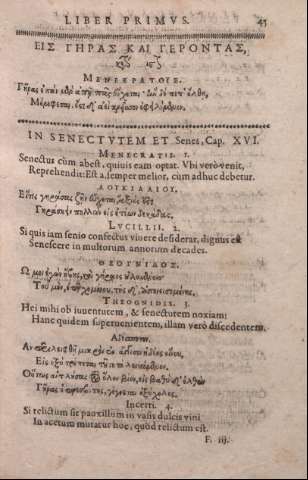 LIBER PRIMVS. 43
ΕΙΣ ΓΗΡΑΣ ΚΑΙ ΓΕΡΟΝΤΑΣ,
ΜΕΝΕΚΡΑΤΟΥΣ.
Γῆρας ἐπὰν μὲν ἀπῇ πᾶς εὔχεται· ἢν δέ ποτ' ἔλθῃ,
Μέμφεται,
IN SENECTVTEM ET Senes, Cap. XVI.
MENECRATIS. 1.
Senectus cùm abest, quiuis eam optat. Vbi verò venit,
Reprehendit: Est a. semper melior, cum adhuc debetur.
ΛΟΥΚΙΛΛΙΟΥ,
Εἴ τις γηράσας ζῆν εὔχεται,
Γηράσκειν πολλὰς εἰς ἐτέων δεκάδας.
LVCILLII. 2.
Si quis iam senio confectus viuere desiderat, dignus est
Senescere in multorum annorum decades.
ΘΕΟΓΝΙΔΟΣ,
Ω μοι ἐγὼν ἥβης, καὶ γήραος οὐλομένοιο
Τοῦ μὲν ἐπερχομένου, τῆς δ' ἀπονεισομένης.
THEOGNIDIS. 3.
Hei mihi ob iuuentutem, & senectutem noxiam:
Hanc quidem superuenientem, illam verò discedentem.
Αν
Εἰς ὀξὺ τρέπεται τῦτο τὸ λειπόμενον.
Οὕτως ἀπαντλήσας ὅλον βίον, εἰς βαθὺ δ' ἐλθὼν
Γῆρας
Incerti. 4.
Si relictum sit pauxillum in vasis dulcis vini
In acetum mutatur hoc, quod relictum est.
F. iij.